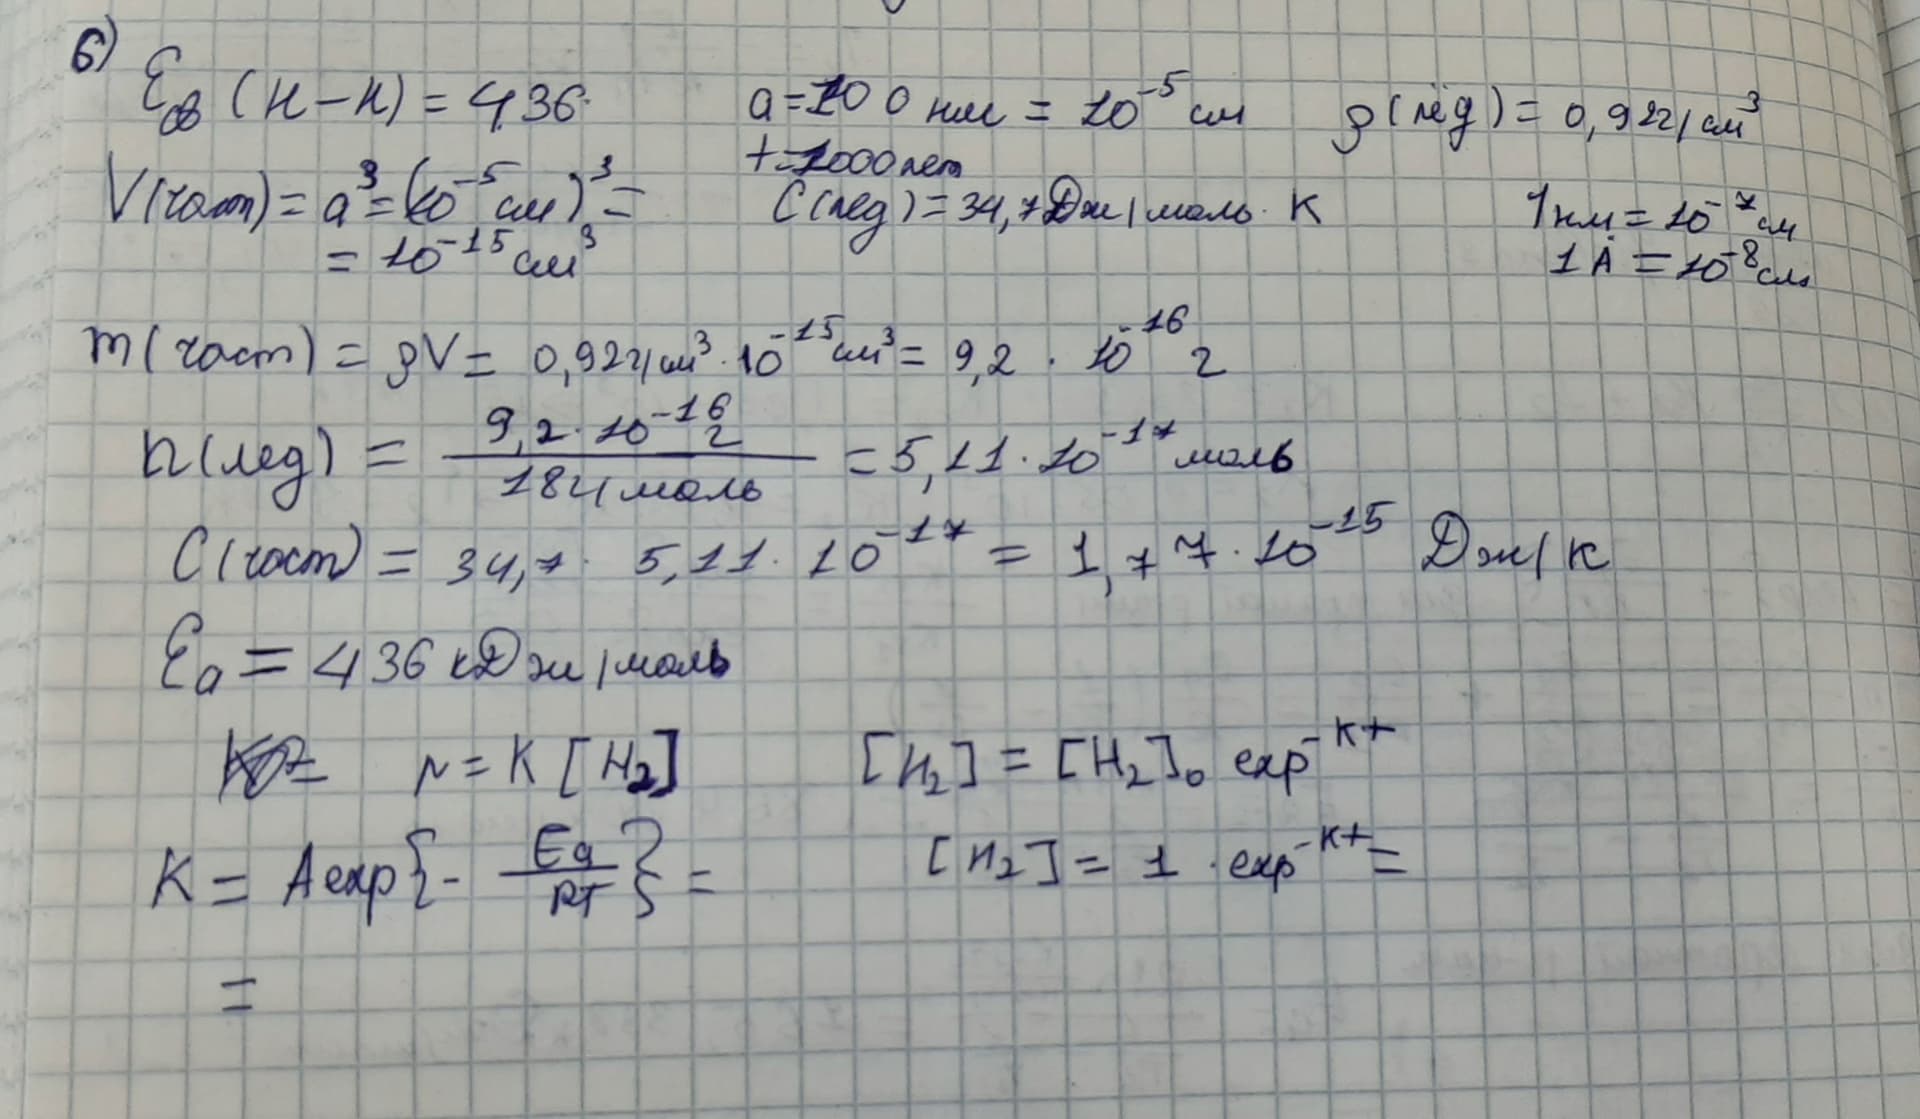 6)
Eсв (H–H) = 436 a = 100 нм = 10⁻⁵ см ρ(лёд) = 0,92г/см³
t = 1000 лет
V(част) = a³ = (10⁻⁵ см)³ = C(лед) = 34,7 Дж/моль·K 1 нм = 10⁻⁷ см
= 10⁻¹⁵ см³ 1 Å = 10⁻⁸ см
m(част) = ρV = 0,92г/см³ · 10⁻¹⁵ см³ = 9,2 · 10⁻¹⁶ г
n(лед) = 9,2·10⁻¹⁶ г / 18г/моль = 5,11·10⁻¹⁷ моль
C(част) = 34,7 · 5,11·10⁻¹⁷ = 1,77·10⁻¹⁵ Дж/K
Ea = 436 кДж/моль
r = K [H₂] [H₂] = [H₂]₀ exp⁻ᴷᵗ
K = A exp{- Ea / RT} = [H₂] = 1 · exp⁻ᴷᵗ =
=